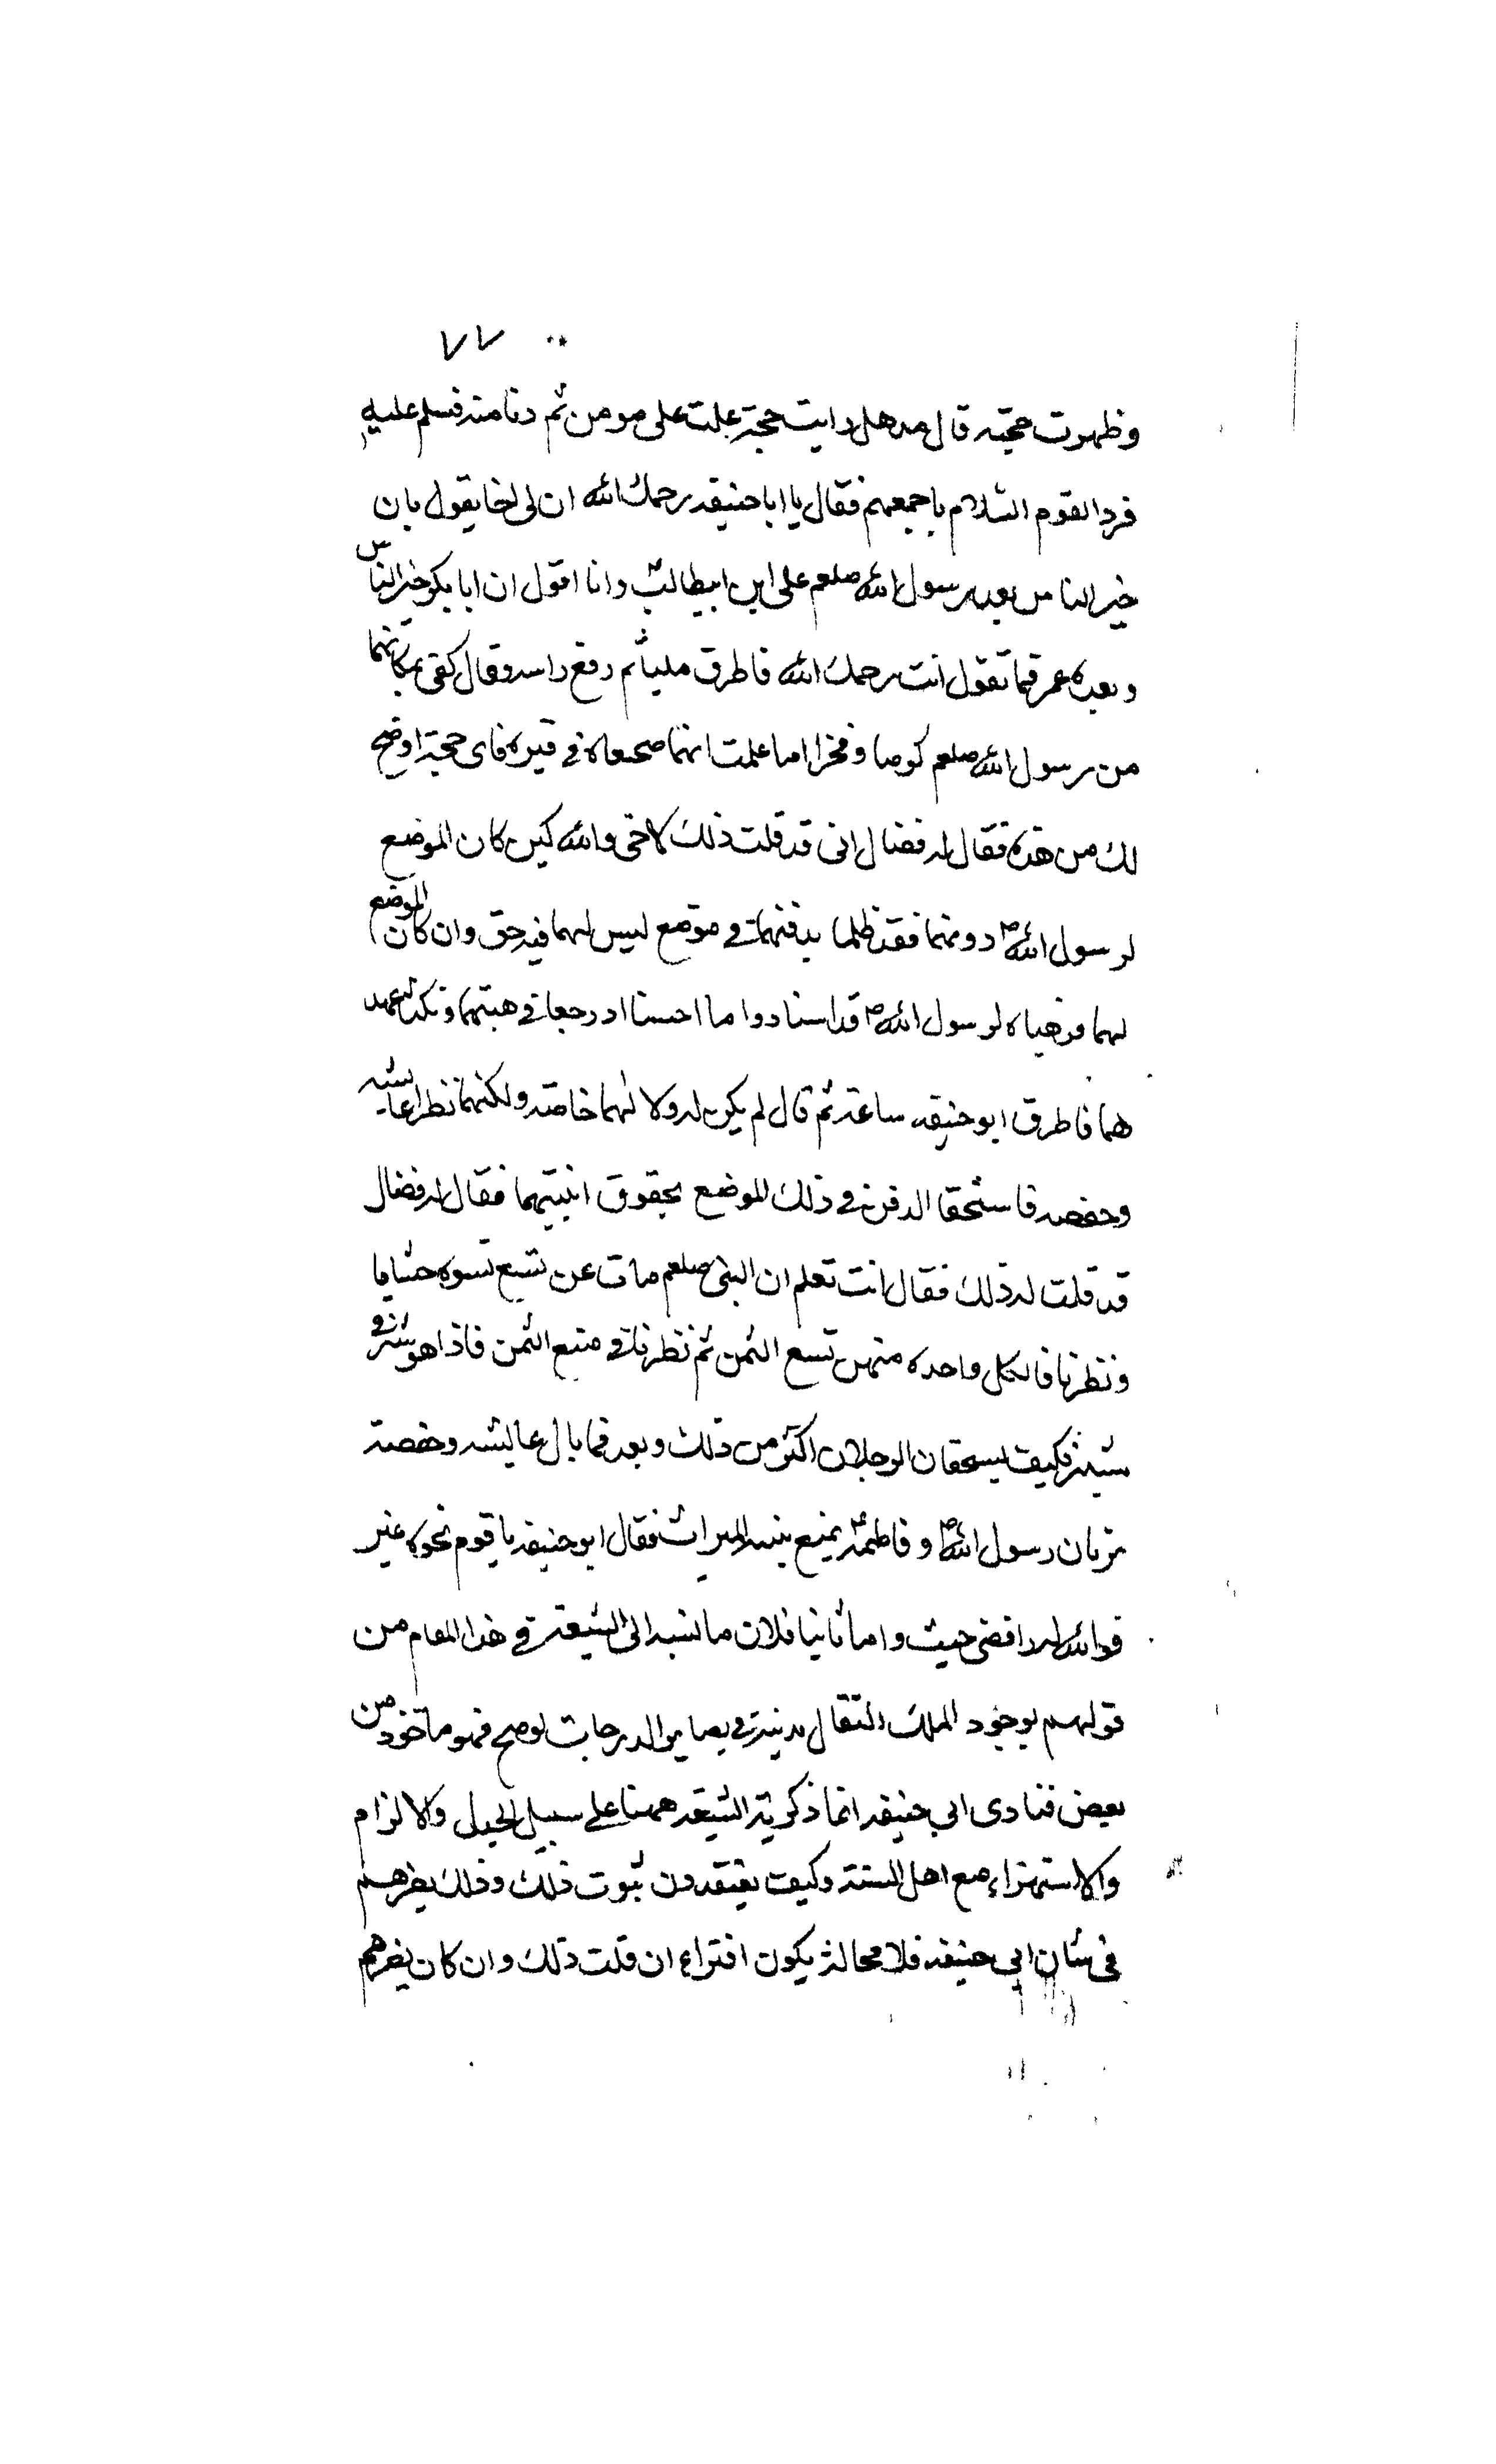 ٧٧
وظهرت حجته قال مه هل رايت حجة علت على مومن ثم دنا منه فسلم عليه
فرد القوم السلام باجمعهم فقال يا ابا حنيفه رحمك الله ان لى اخا يقول بان
خير الناس بعد رسول الله صلعم على ابن ابيطالب وانا اقول ان ابا بكر خير الناس
وبعده عمر فما تقول انت رحمك الله فاطرق مليا ثم رفع راسه وقال كفى بمكانهما
من رسول الله صلعم كرما وفخرا اما علمت انهما ضجيعاه فى قبره فاى حجة اوضح
لك من هذه فقال له فضال انى قد قلت ذلك لاخى والله لئن كان الموضع
لرسول الله ص دونهما فقد ظلما بدفنهما فى موضع ليس لهما فيه حق وان كان الموضع
لهما فوهباه لرسول الله ص قد اساءوا ما احسنا اد رجعا فى هبتهما ونكثا عهد
هما فاطرق ابو حنيفه ساعة ثم قال لم يكن له ولا لهما خاصة ولكنهما نظرا عايشه
وحفصه فاستحقا الدفن فى ذلك الموضع بحقوق ابنتيهما فقال له فضال
قد قلت له ذلك فقال انت تعلم ان النبى صلعم مات عن تسع نسوه حشايا
ونظرنا فا لكل واحده منهن تسع الثمن ثم نظرنا فى تسع الثمن فاذا هو شبر فى
شبر فكيف يستحقان الرجلان اكثر من ذلك وبعد فما بال عايشه وحفصة
ترثان رسول الله ص وفاطمة ع يمنع بنته الميراث فقال ابو حنيفه يا قوم نحوه عنى
فوالله انه رافضى خبيث واما ثانيا فلان ما نسبه الى الشيعة فى هذا المقام من
قولهم بوجود الملك النقال مدنية فى بصاير الدرجات لو صح فهو ماخوذ من
بعض فتاوى ابى حنيفه انما ذكرته الشيعه ههنا على سبيل الجدل والالزام
والاستهزاء مع اهل السنة وكيف يعتقدون ثبوت ذلك وذلك يضرهم
فى شان ابى حنيفه فلا محالة يكون افتراء ان قلت ذلك وان كان يضرهم